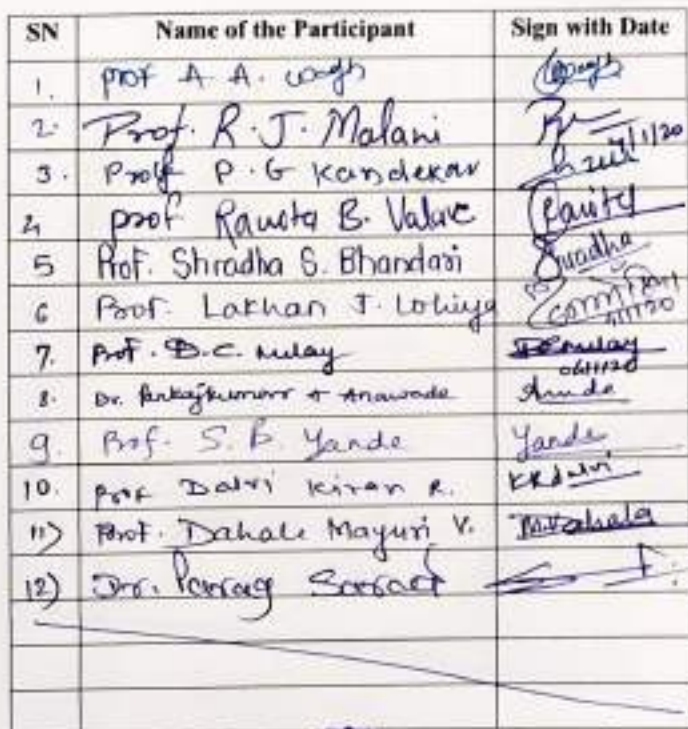 SN Name of the Participant Sign with Date
1. Prof A. A. Wagh Wagh
2. Prof. R. J. Malani /1/20
3. Prof P. G Kandekar
4 Prof B. Valve
5 Prof. Shradha S. Bhandari Shradha
6 Prof. Lakhan J. Lohiya
7. Prof. D.C. Mulay Mulay
06/11/20
8. Dr. Pankajkumar Anawade
9. Prof. S. B. Yande Yande
10. Prof Dalvi Kiran R. KRdalvi
11) Prof. Dahale Mayuri V. M.V.Dahale
12) Dr. Parag